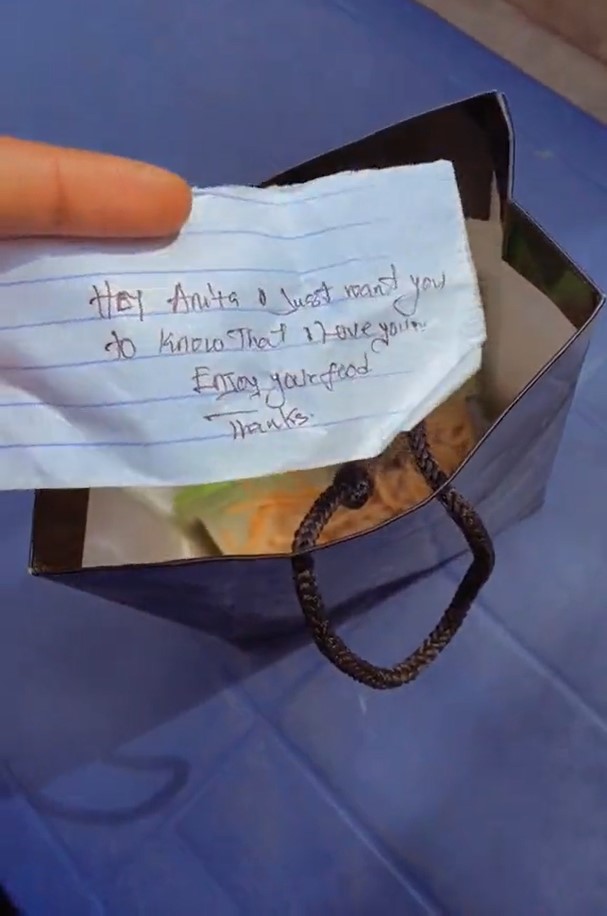 Hey Anita I Just want you
to know That I love you...
Enjoy your food
Thanks.